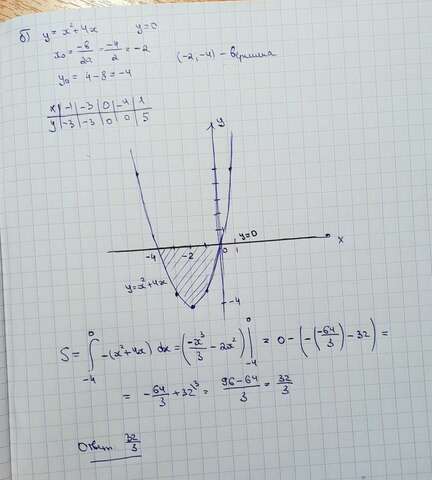 б) y = x² + 4x    y = 0
x₀ = -b/2a = -4/2 = -2    (-2; -4) - вершина
y₀ = 4 - 8 = -4
x | -1 | -3 | 0 | -4 | 1
y | -3 | -3 | 0 | 0 | 5
y
y=0
-4 -2 0 1 x
y = x² + 4x
-4
S = ∫₋₄⁰ -(x² + 4x) dx = (-x³/3 - 2x²) |₋₄⁰ = 0 - (-(-64/3) - 32) =
= -64/3 + 32³ = (96 - 64)/3 = 32/3
Ответ: 32/3